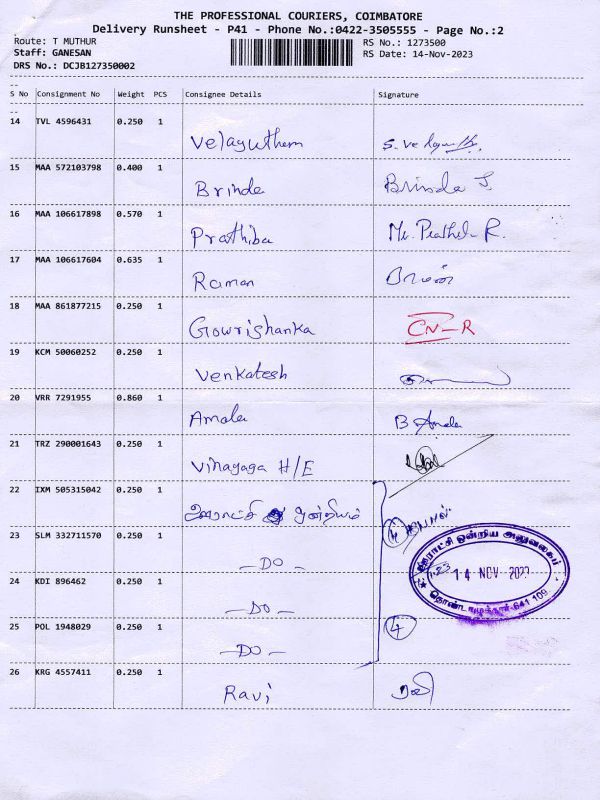 THE PROFESSIONAL COURIERS, COIMBATORE
Delivery Runsheet - P41 - Phone No.:0422-3505555 - Page No.:2
Route: T MUTHUR RS No.: 1273500
Staff: GANESAN RS Date: 14-Nov-2023
DRS No.: DCJB127350002
--
S No Consignment No Weight PCS Consignee Details Signature
--
14 TVL 4596431 0.250 1 Velayuthem
15 MAA 572103798 0.400 1 Brinda Brinda J.
16 MAA 106617898 0.570 1 Prathiba
17 MAA 106617604 0.635 1 Raman ராமன்
18 MAA 861877215 0.250 1 Gowrishanka CN-R
19 KCM 50060252 0.250 1 Venkatesh
20 VRR 7291955 0.860 1 Amala B Amala
21 TRZ 290001643 0.250 1 Vinayaga H/E
22 IXM 505315042 0.250 1 ஊராட்சி ஒன்றியம்
23 SLM 332711570 0.250 1 -DO-
ஊராட்சி ஒன்றிய அலுவலகம்
14 NOV 2023
தொண்டாமுத்தூர்-641 109
24 KDI 896462 0.250 1 -DO-
25 POL 1948029 0.250 1 -DO- 4
26 KRG 4557411 0.250 1 Ravi ரவி